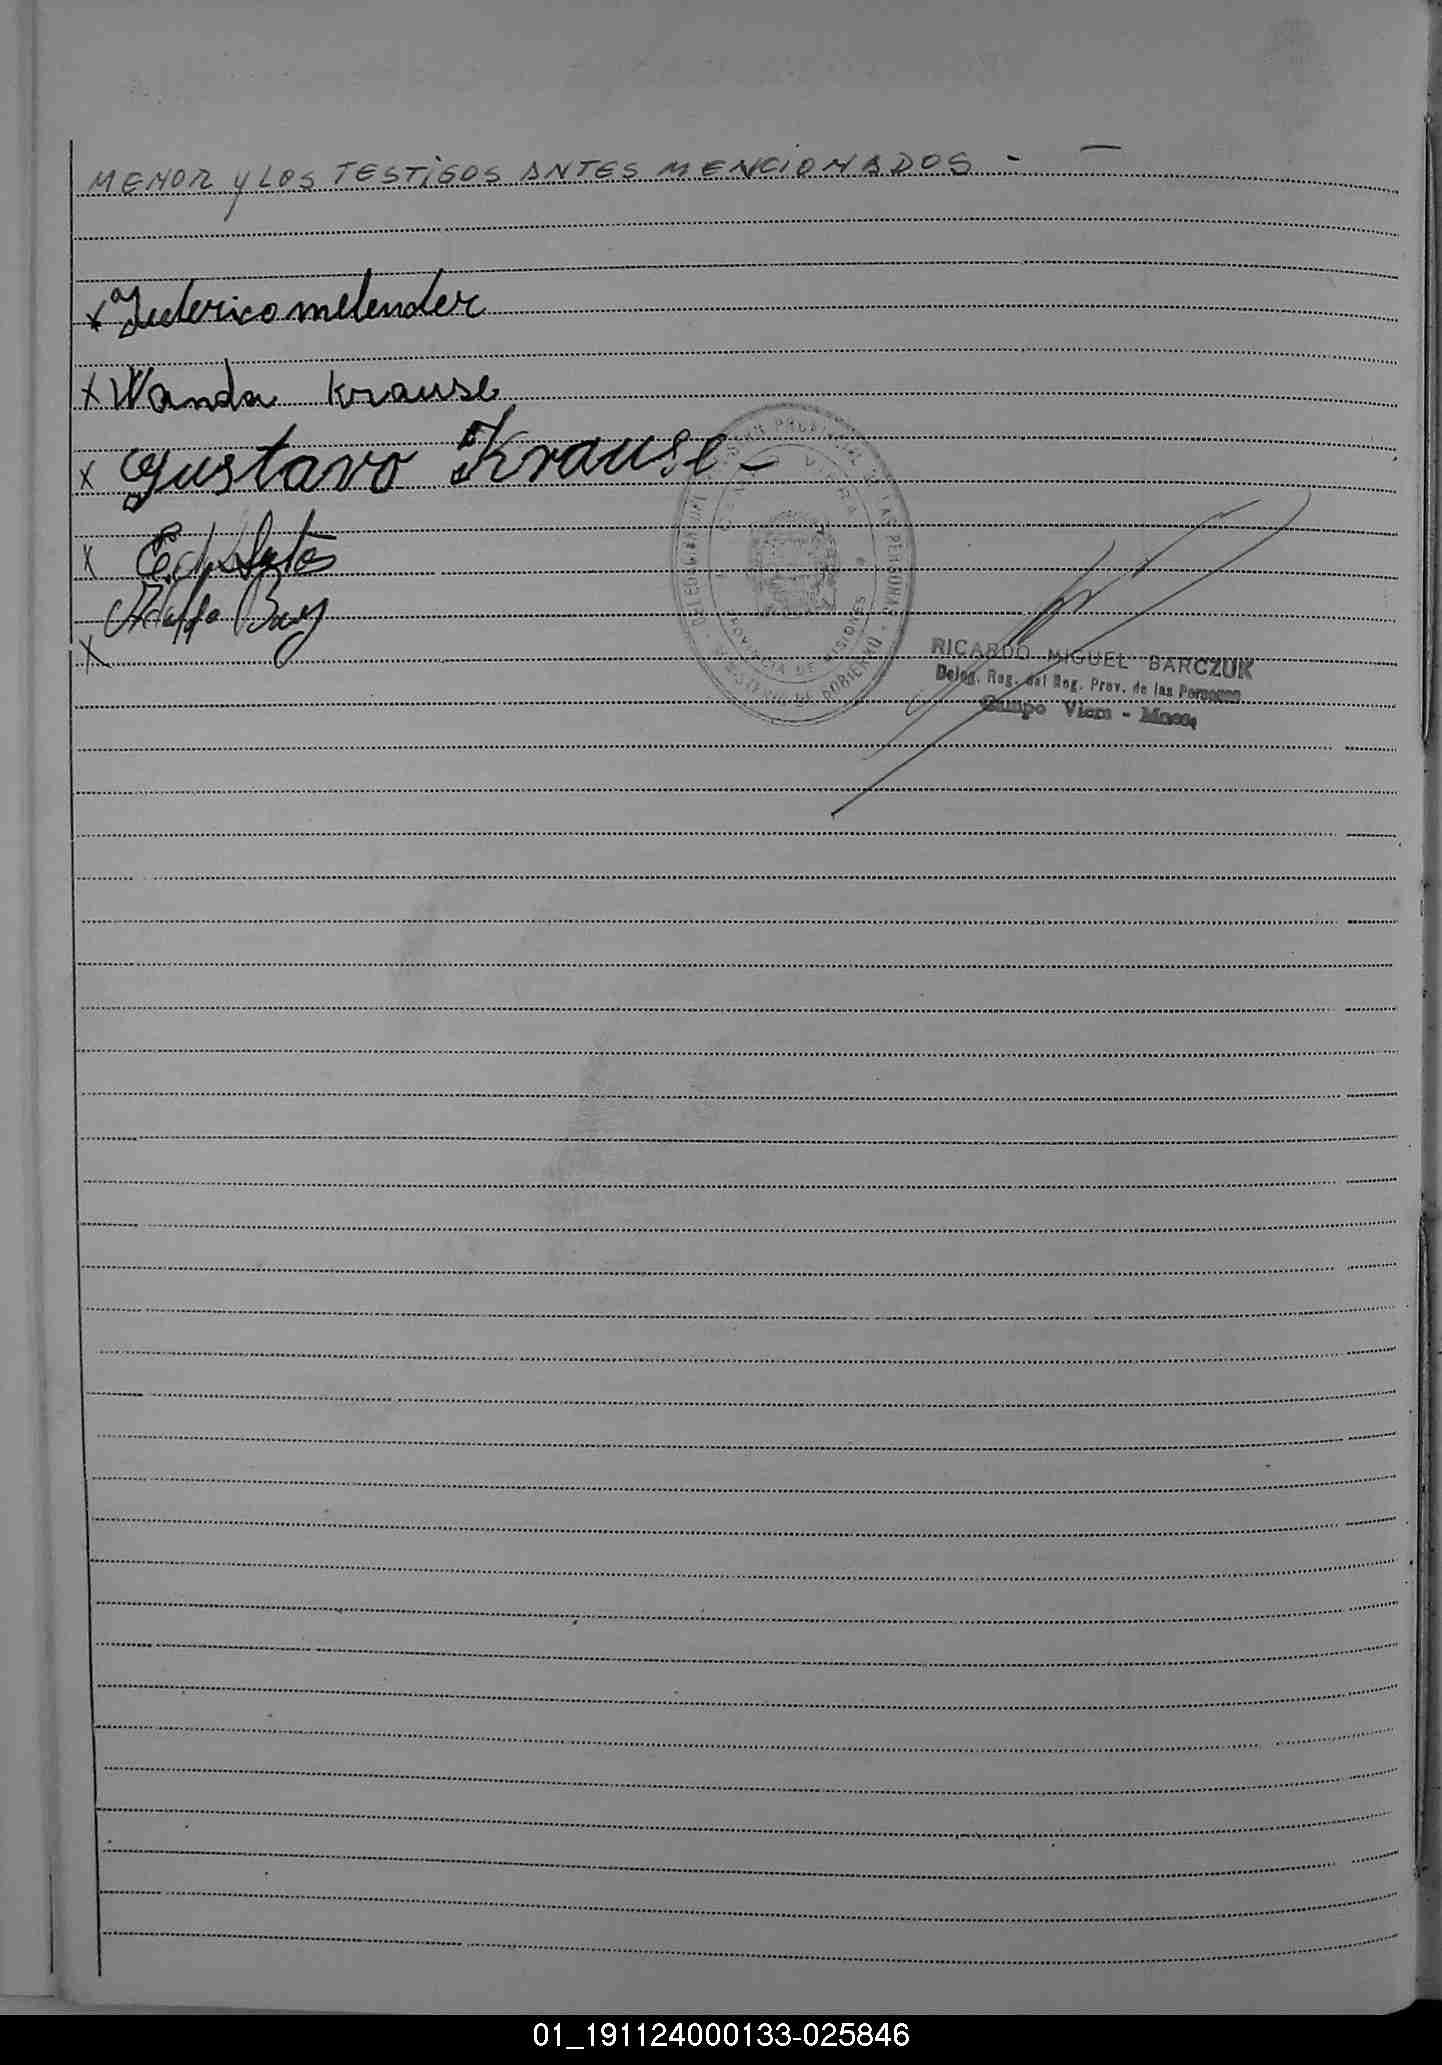 MENOR y LOS TESTIGOS ANTES MENCIONADOS -  —
x Federico melender
x Wanda Krause
x Gustavo Krause -
x
x
CAMPO VIERA
PROVINCIA DE MISIONES
MINISTERIO DE GOBIERNO
RICARDO MIGUEL BARCZUK
Deleg. Reg. del Reg. Prov. de las Personas
Campo Viera - Mnes.
01_191124000133-025846